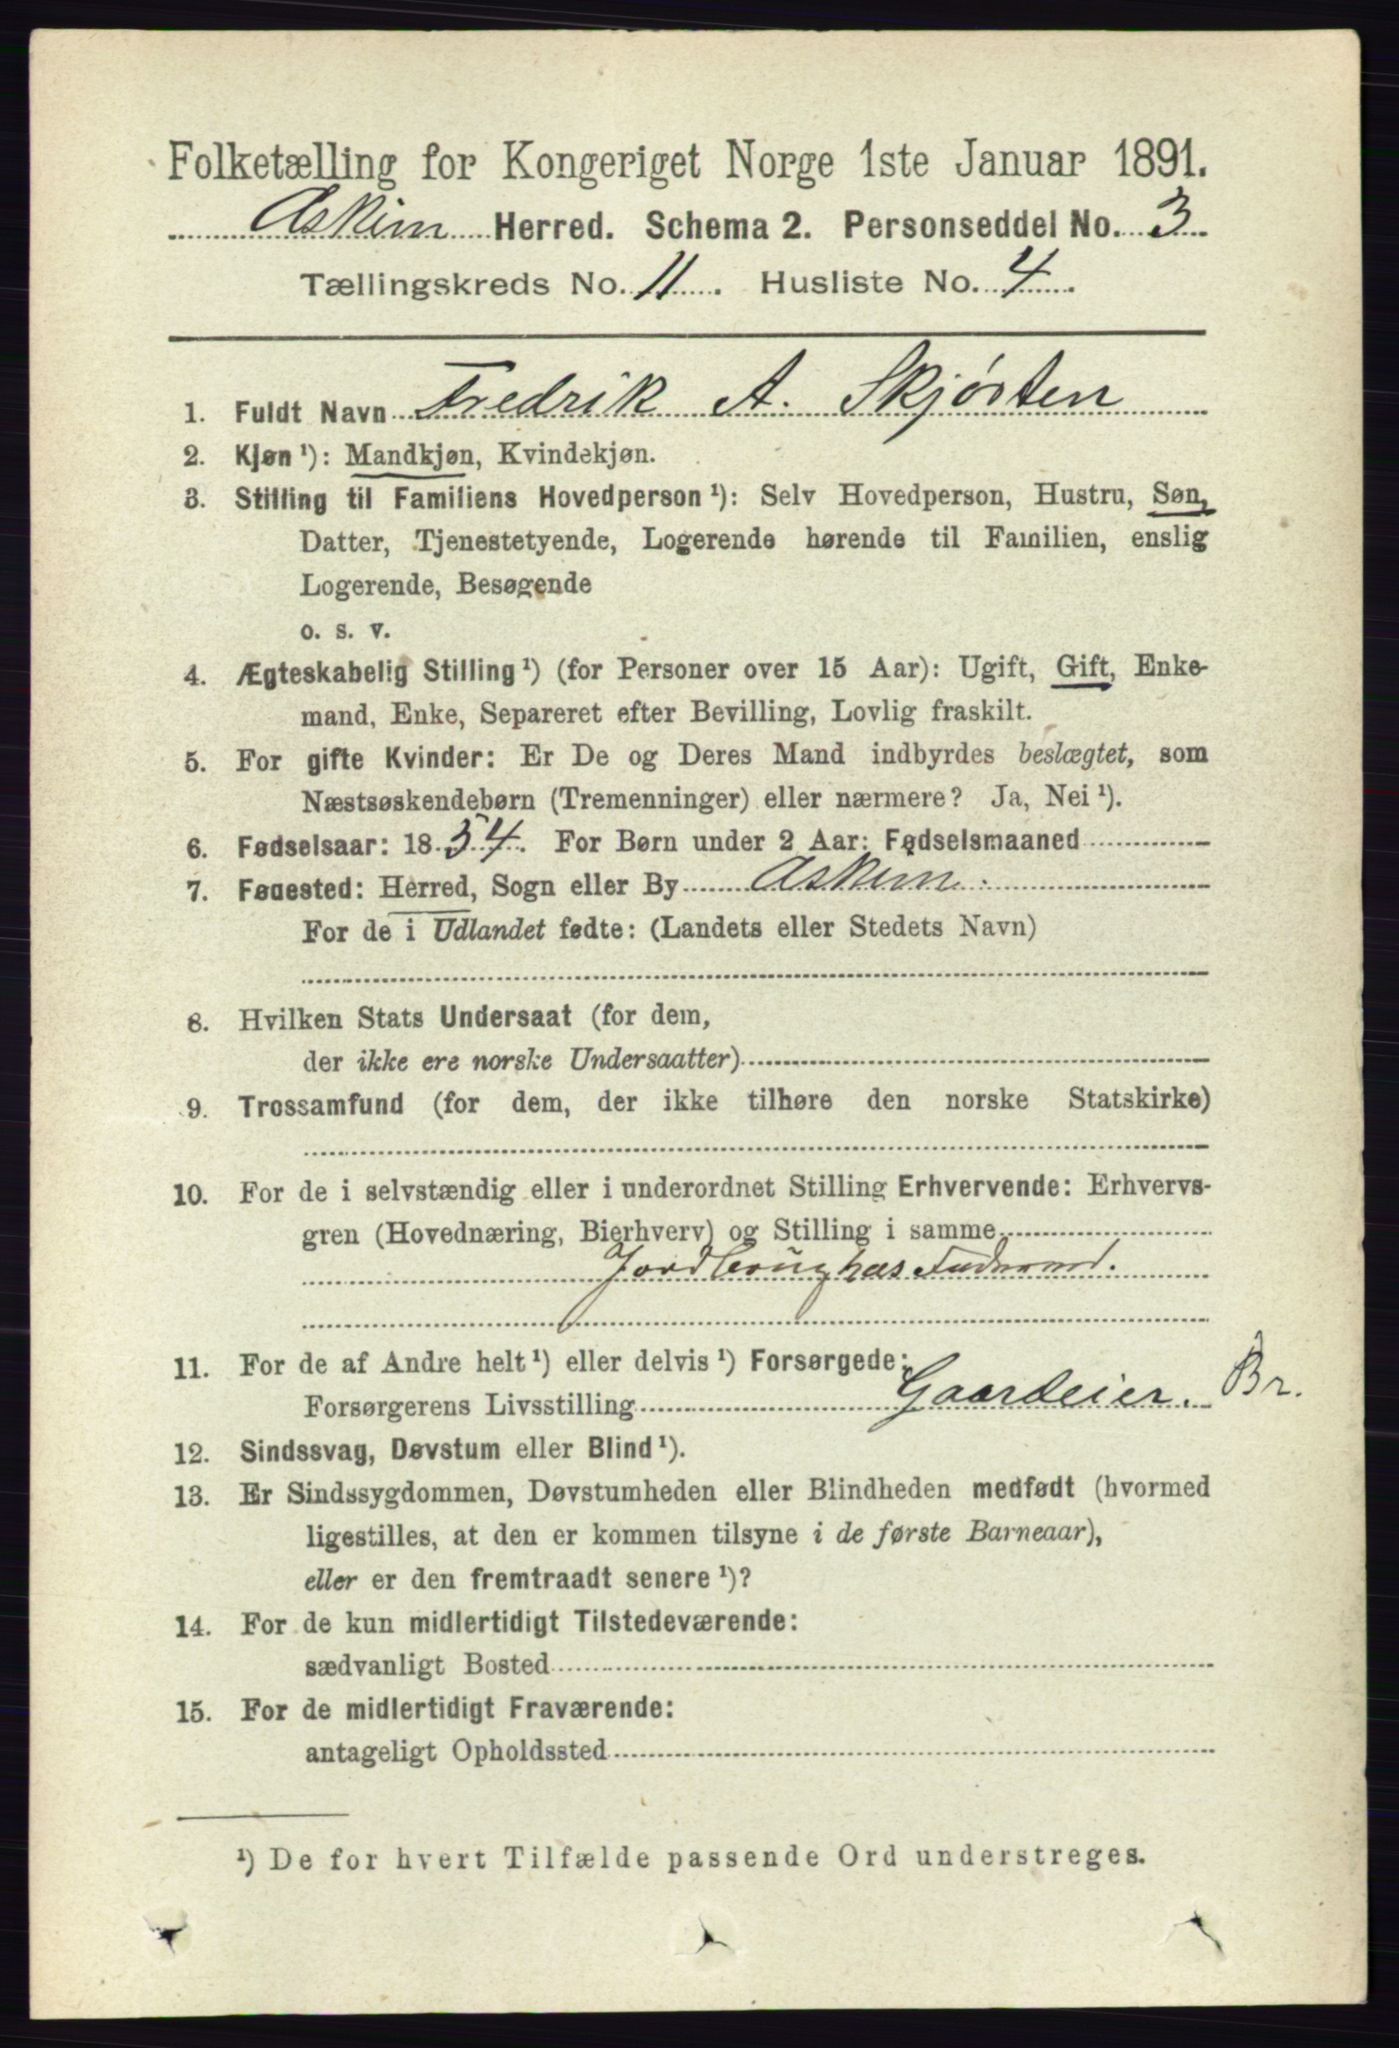 Folketælling for Kongeriget Norge 1ste Januar 1891.
Askim Herred. Schema 2. Personseddel No. 3
Tællingskreds No. 11. Husliste No. 4.
1. Fuldt Navn Fredrik A. Skjørten
2. Kjøn ¹): Mandkjøn, Kvindekjøn.
3. Stilling til Familiens Hovedperson ¹): Selv Hovedperson, Hustru, Søn,
Datter, Tjenestetyende, Logerende hørende til Familien, enslig
Logerende, Besøgende
o. s. v.
4. Ægteskabelig Stilling ¹) (for Personer over 15 Aar): Ugift, Gift, Enke-
mand, Enke, Separeret efter Bevilling, Lovlig fraskilt.
5. For gifte Kvinder: Er De og Deres Mand indbyrdes beslægtet, som
Næstsøskendebørn (Tremenninger) eller nærmere? Ja, Nei ¹).
6. Fødselsaar: 1854. For Børn under 2 Aar: Fødselsmaaned
7. Fødested: Herred, Sogn eller By Askim.
For de i Udlandet fødte: (Landets eller Stedets Navn)
8. Hvilken Stats Undersaat (for dem,
der ikke ere norske Undersaatter)
9. Trossamfund (for dem, der ikke tilhøre den norske Statskirke)
10. For de i selvstændig eller i underordnet Stilling Erhvervende: Erhvervs-
gren (Hovednæring, Bierhverv) og Stilling i samme
Jordbrug hos
11. For de af Andre helt ¹) eller delvis ¹) Forsørgede:
Forsørgerens Livsstilling Gaardeier. Br.
12. Sindssvag, Døvstum eller Blind ¹).
13. Er Sindssygdommen, Døvstumheden eller Blindheden medfødt (hvormed
ligestilles, at den er kommen tilsyne i de første Barneaar),
eller er den fremtraadt senere ¹)?
14. For de kun midlertidigt Tilstedeværende:
sædvanligt Bosted
15. For de midlertidigt Fraværende:
antageligt Opholdssted
¹) De for hvert Tilfælde passende Ord understreges.